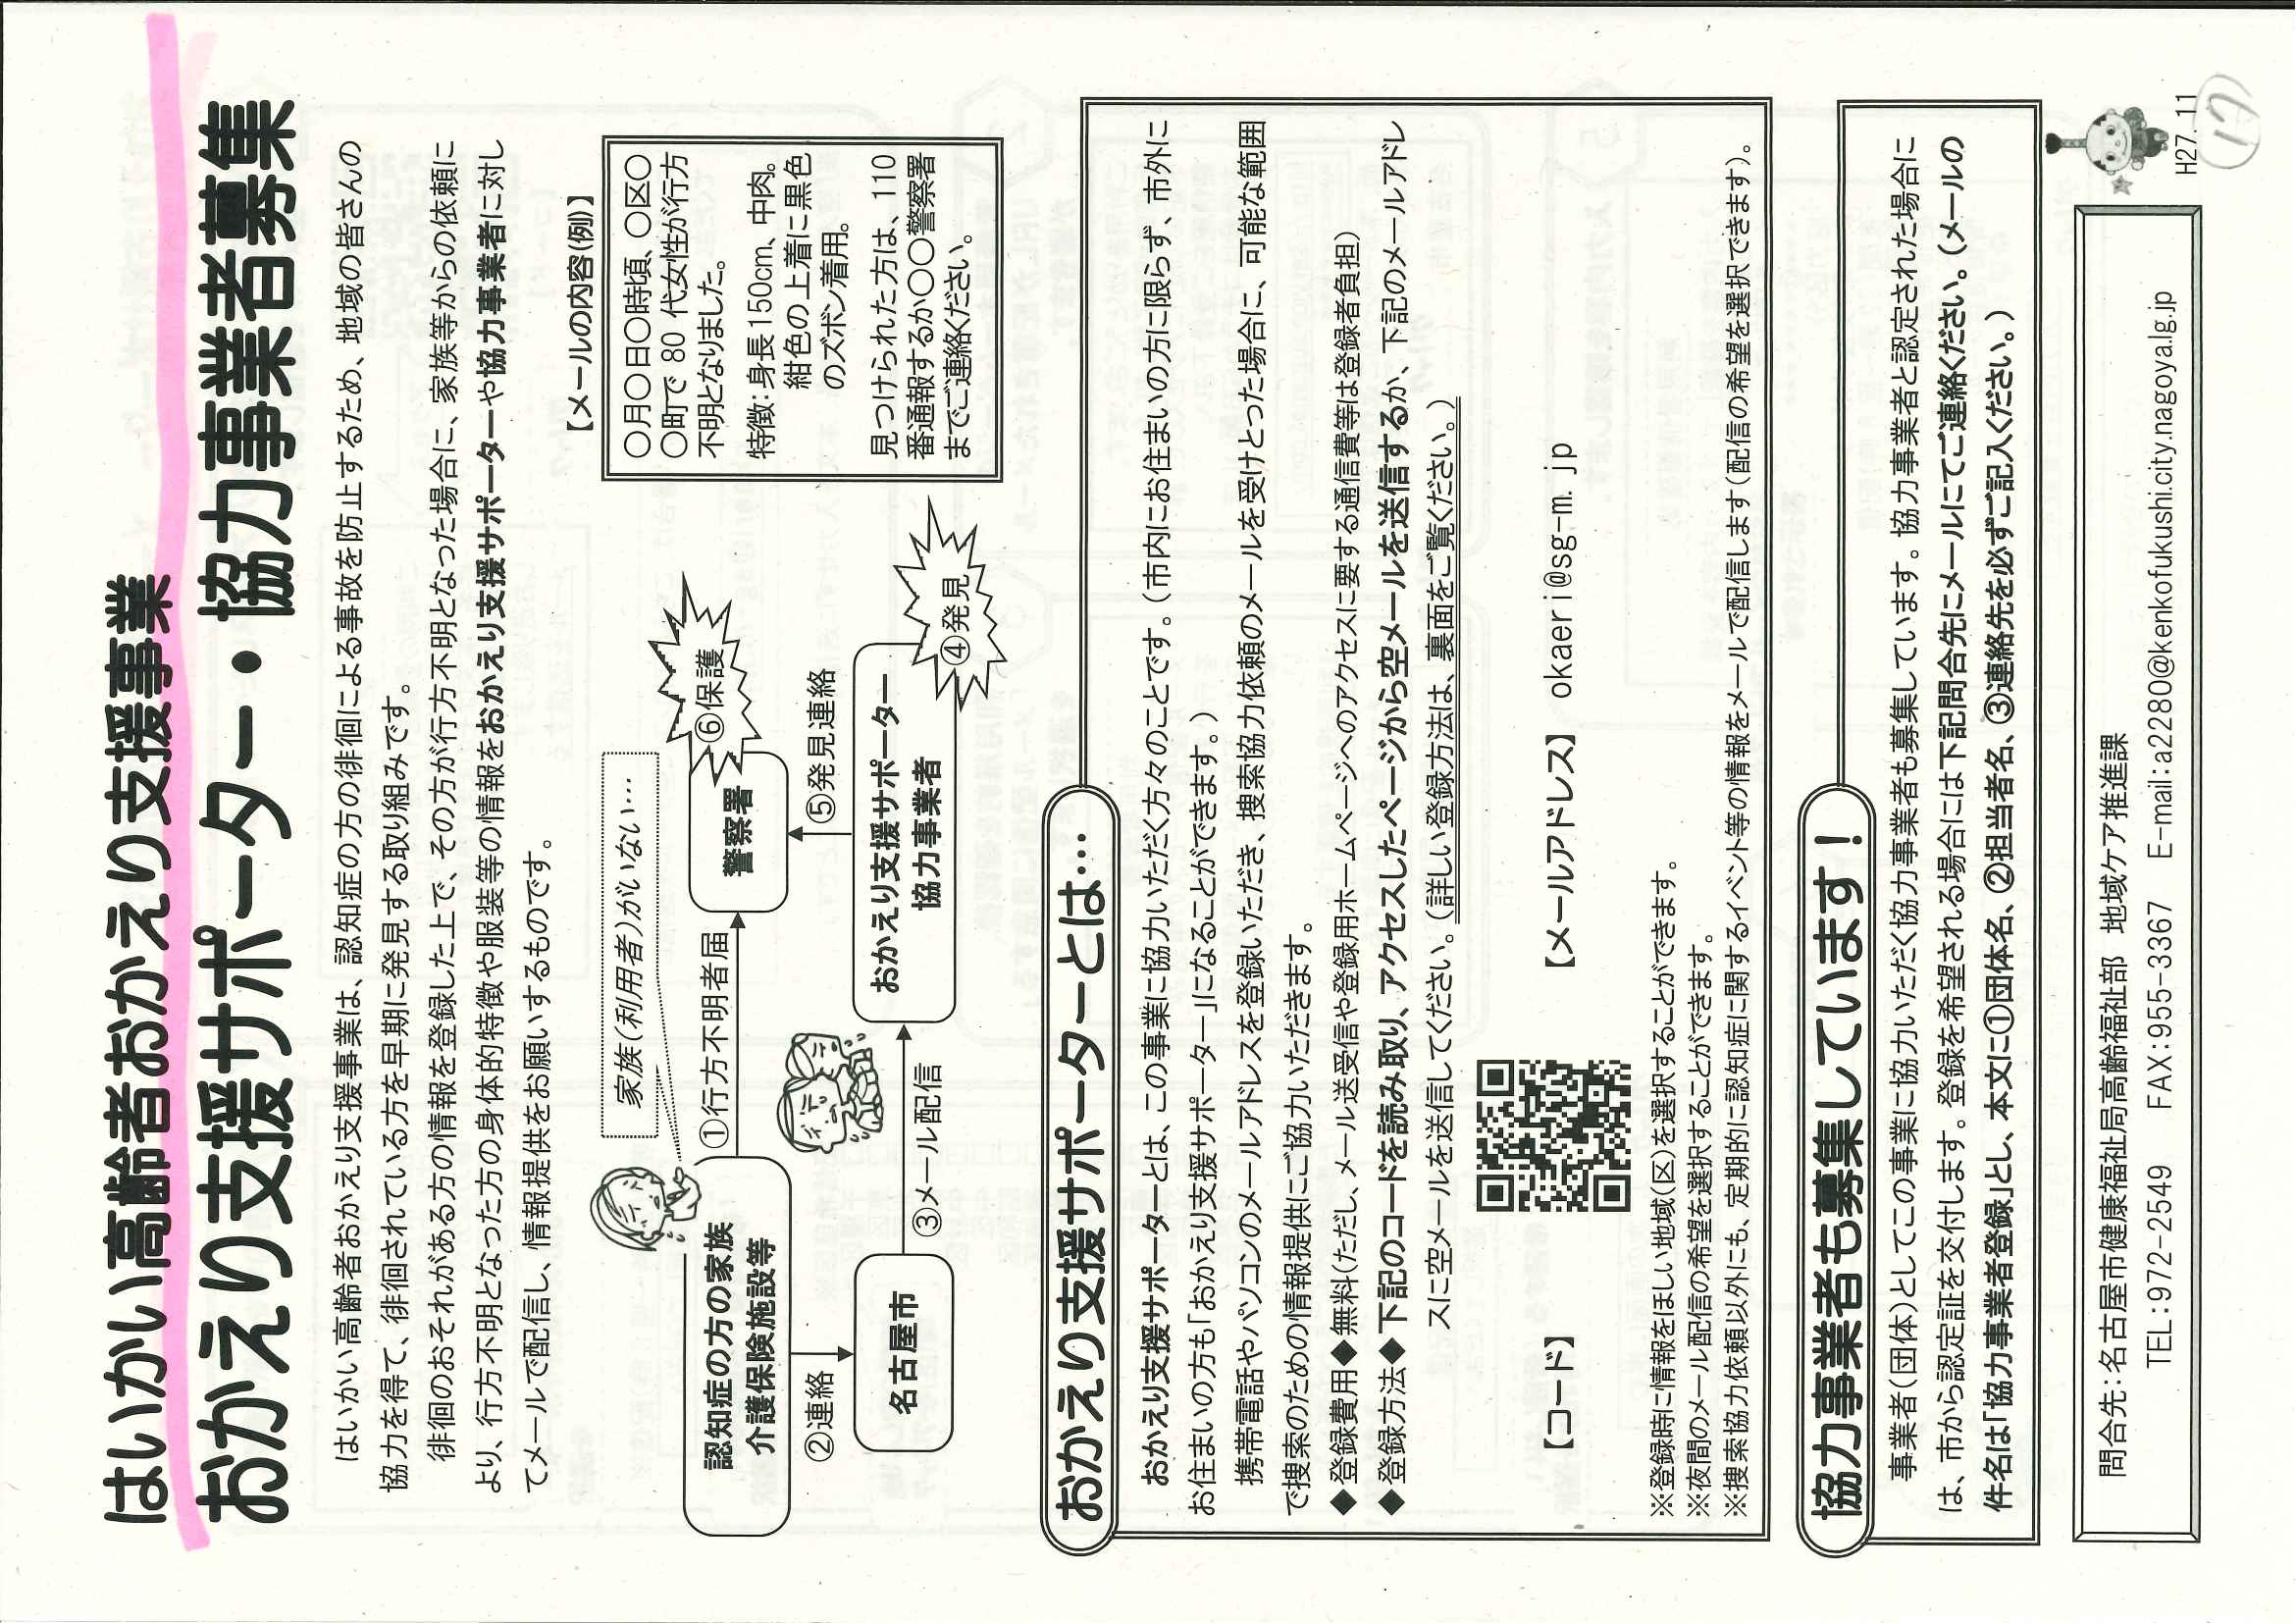 はいかい高齢者おかえり支援事業
おかえり支援サポーター・協力事業者募集
はいかい高齢者おかえり支援事業は、認知症の方の徘徊による事故を防止するため、地域の皆さんの
協力を得て、徘徊されている方を早期に発見する取り組みです。
徘徊のおそれがある方の情報を登録した上で、その方が行方不明となった場合に、家族等からの依頼に
より、行方不明となった方の身体的特徴や服装等の情報をおかえり支援サポーターや協力事業者に対し
てメールで配信し、情報提供をお願いするものです。
家族(利用者)がいない…
認知症の方の家族
介護保険施設等
①行方不明者届
警察署
⑥保護
②連絡
名古屋市
③メール配信
おかえり支援サポーター
協力事業者
⑤発見連絡
④発見
【メールの内容(例)】
〇月〇日〇時頃、〇区〇
〇町で 80 代女性が行方
不明となりました。
特徴：身長150cm、中肉。
紺色の上着に黒色
のズボン着用。
見つけられた方は、110
番通報するか〇〇警察署
までご連絡ください。
おかえり支援サポーターとは…
おかえり支援サポーターとは、この事業に協力いただく方々のことです。(市内にお住まいの方に限らず、市外に
お住まいの方も「おかえり支援サポーター」になることができます。)
携帯電話やパソコンのメールアドレスを登録いただき、捜索協力依頼のメールを受けとった場合に、可能な範囲
で捜索のための情報提供にご協力いただきます。
◆登録費用◆無料(ただし、メール送受信や登録用ホームページへのアクセスに要する通信費等は登録者負担)
◆登録方法◆下記のコードを読み取り、アクセスしたページから空メールを送信するか、下記のメールアドレ
スに空メールを送信してください。(詳しい登録方法は、裏面をご覧ください。)
【コード】
【メールアドレス】 okaeri@sg-m.jp
※登録時に情報をほしい地域(区)を選択することができます。
※夜間のメール配信の希望を選択することができます。
※捜索協力依頼以外にも、定期的に認知症に関するイベント等の情報をメールで配信します(配信の希望を選択できます)。
協力事業者も募集しています！
事業者(団体)としてこの事業に協力いただく協力事業者も募集しています。協力事業者と認定された場合に
は、市から認定証を交付します。登録を希望される場合には下記問合先にメールにてご連絡ください。(メールの
件名は「協力事業者登録」とし、本文に①団体名、②担当者名、③連絡先を必ずご記入ください。)
問合先：名古屋市健康福祉局高齢福祉部 地域ケア推進課
TEL：972-2549 FAX：955-3367 E-mail：a2280@kenkofukushi.city.nagoya.lg.jp
H27.11